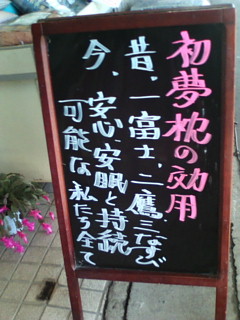 初夢枕の効用
昔、一富士、二鷹、三なすび
今、安心、安眠と持続
可能な私たち全て